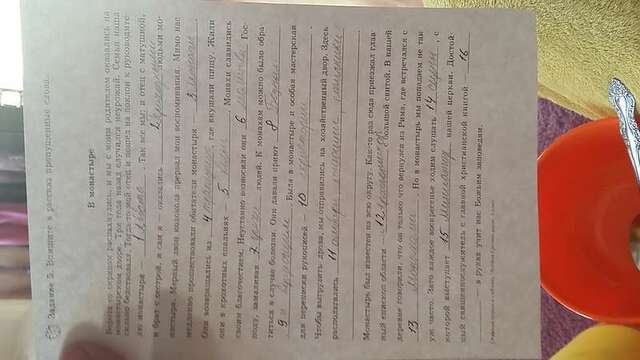 Задание 5. Впишите в рассказ пропущенные слова.
В монастыре
Ворота со скрипом распахнулись, и мы с моим родителем оказались на
монастырском дворе. Три года назад случился неурожай. Семья наша
сильно бедствовала. Тогда-то мой отец и пошел на поклон к руководите-
лю монастыря — 1 аббату. Так все мы: и отец с матушкой,
и брат с сестрой, и сам я — оказались 2 людьми мо-
настыря. Мерный звон колокола прервал мои воспоминания. Мимо нас
медленно прошествовали обитатели монастыря — 3 монахи
Они возвращались из 4 трапезную, где вкушали пищу. Жили
они в крохотных спальнях — 5 кельи. Монахи славились
своим благочестием. Неустанно возносили они 6 молитвы Гос-
поду, замаливая 7 грехи людей. К монахам можно было обра-
титься в случае болезни. Они давали приют 8 бедным
9 и нуждающимся. Была в монастыре и особая мастерская
для переписки рукописей — 10 скрипторий.
Чтобы выгрузить дрова, мы отправились на хозяйственный двор. Здесь
располагались 11 амбары, конюшни,
Монастырь был известен на всю округу. Как-то раз сюда приезжал глав-
ный епископ области — 12 архиепископ с большой свитой. В нашей
деревне говорили, что он только что вернулся из Рима, где встречался с
13. Но в монастырь мы попадаем не так
уж часто. Зато каждое воскресенье ходим слушать 14, с
которой выступает 15 нашей церкви. Достой-
ный священнослужитель с главной христианской книгой — 16
— в руках учит нас Божьим заповедям.